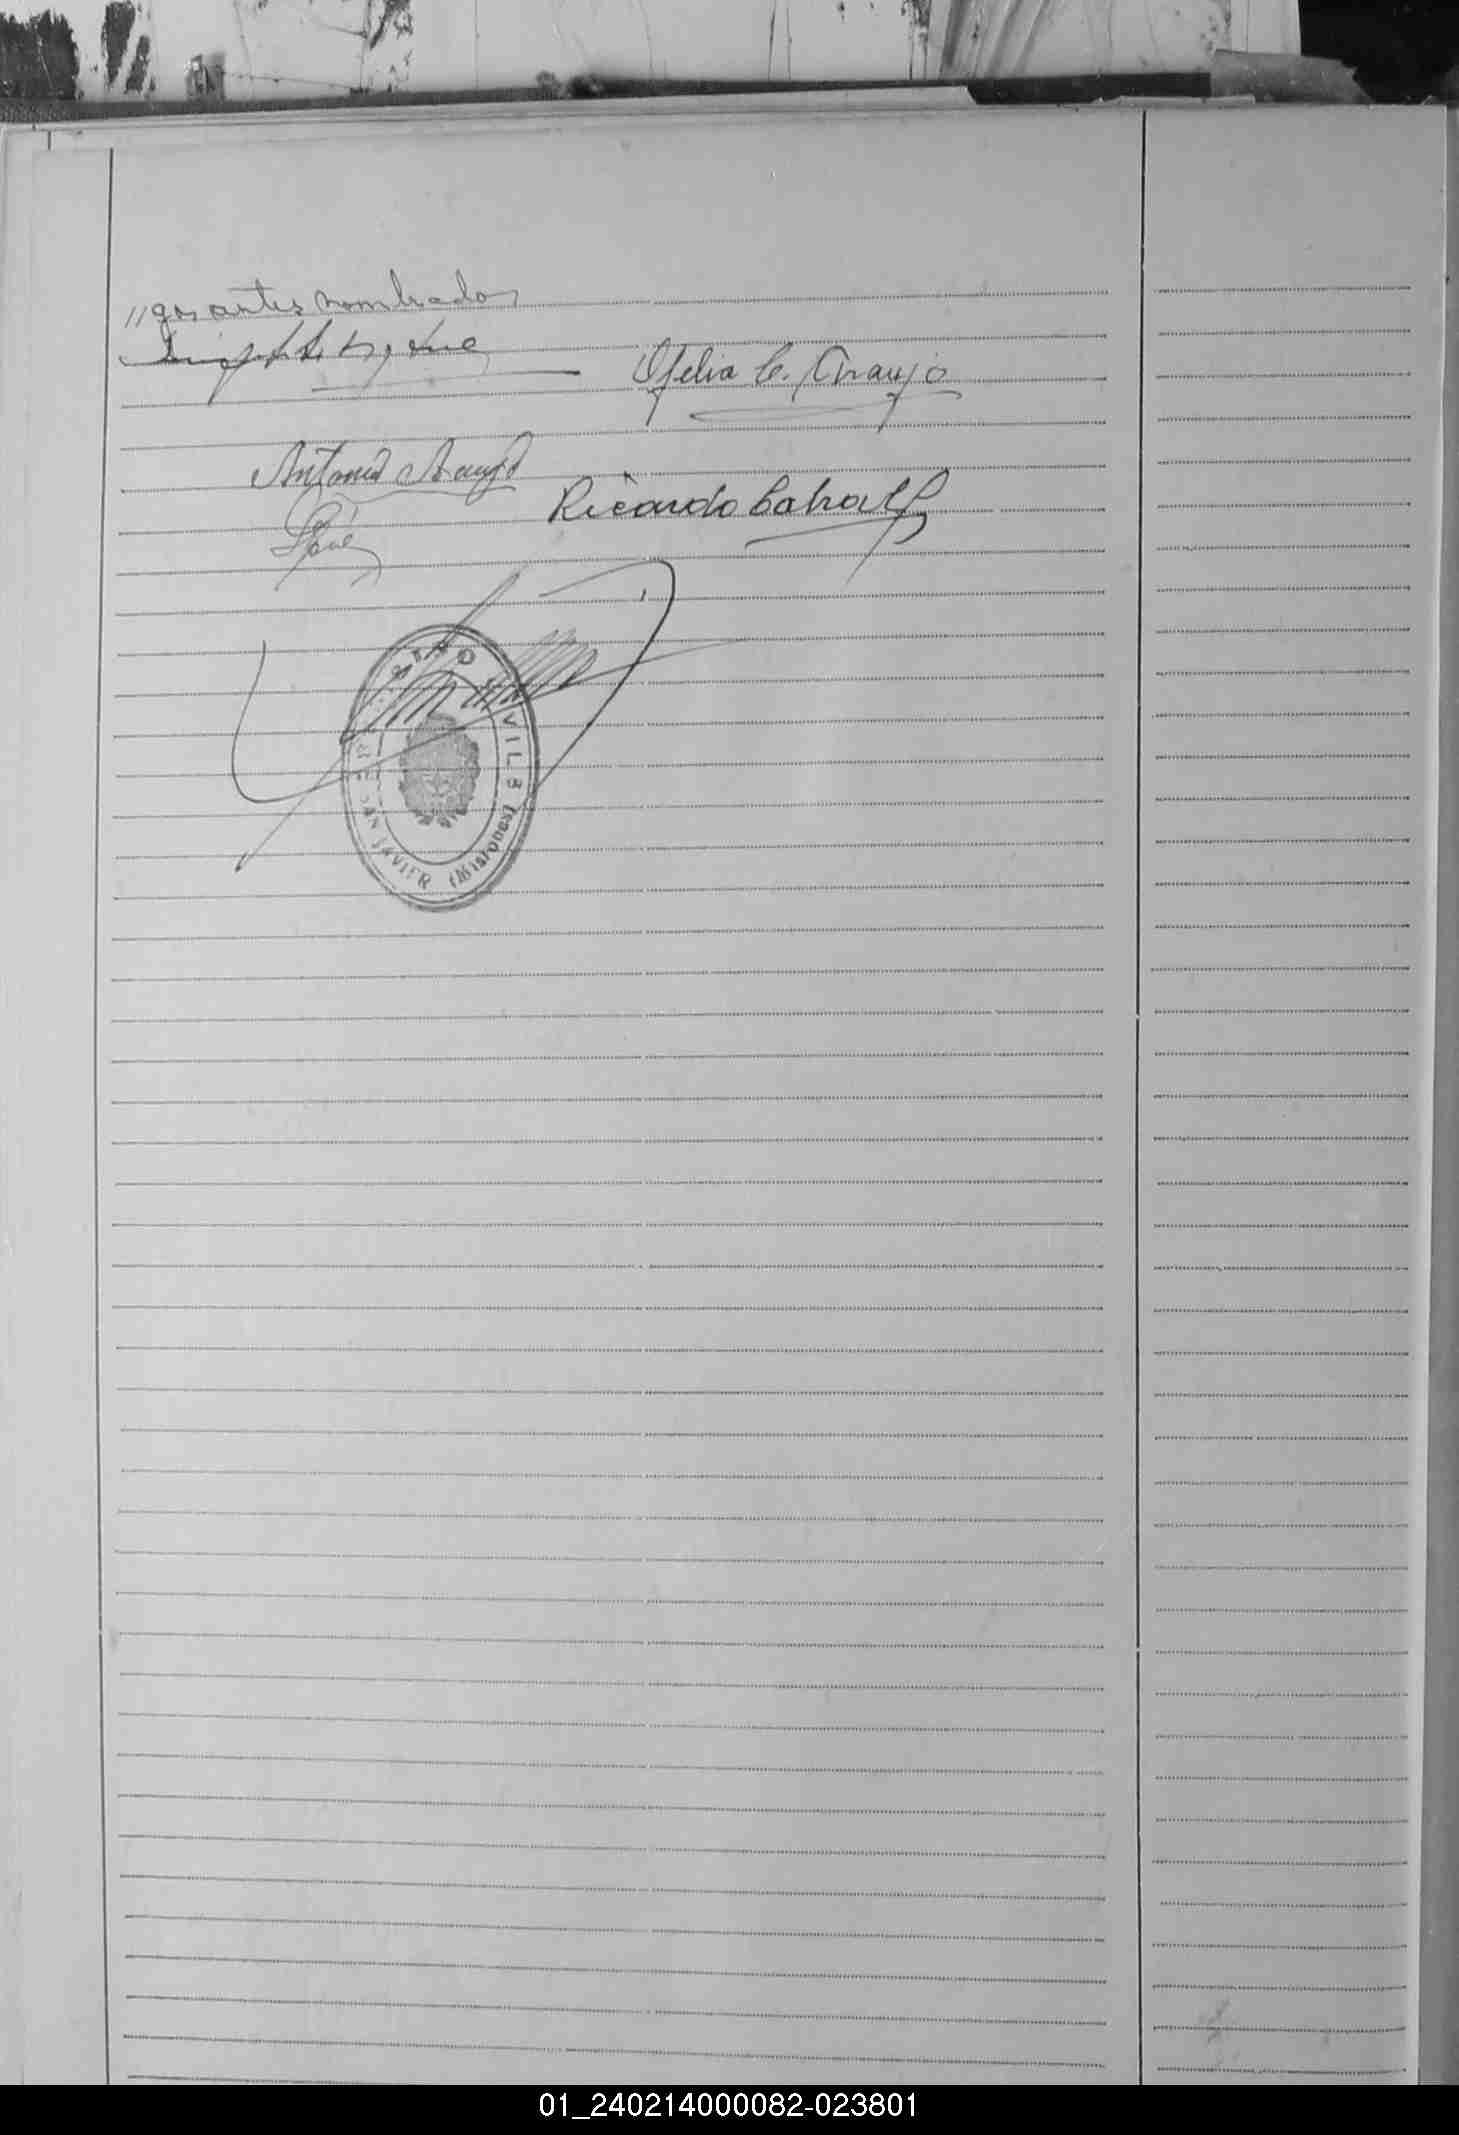 //gos antes nombrados
Ofelia C. Araujo
Antonio Araujo
Ricardo Cabral
CIVIL
SAN JAVIER (Misiones)
01_240214000082-023801